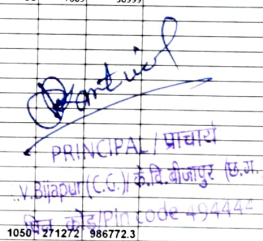 PRINCIPAL / प्राचार्य
.V. Bijapur (C.G.) / के.वि.बीजापुर (छ.ग.
पिन कोड/Pin code 494444
1050 271272 986772.3